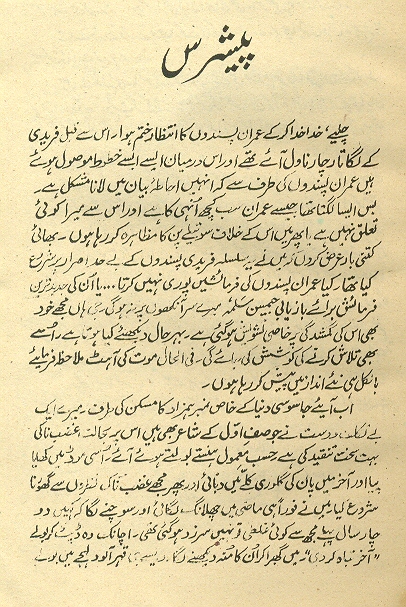 پیشرس
چلیے، خدا خدا کر کے عمران پسندوں کا انتظار ختم ہوا۔ اس سے قبل فریدی
کے لگاتار چار ناول آئے تھے اور اس درمیان ایسے ایسے خطوط موصول ہوئے
ہیں عمران پسندوں کی طرف سے کہ انہیں احاطۂ بیان میں لانا مشکل ہے۔
بس ایسا لگتا تھا جیسے عمران سب کچھ اُنہی کا ہے اور اس سے میرا کوئی
تعلق نہیں ہے یا پھر میں اس کے خلاف سوتیلے پن کا مظاہرہ کر رہا ہوں۔ بھائی
کتنی بار عرض کروں کہ میں نے یہ سلسلہ فریدی پسندوں کے بے حد اصرار پر شروع
کیا تھا۔ کیا عمران پسندوں کی فرمائشیں پوری نہیں کرتا.... یا اُن کی جدید ترین
فرمائش برائے بازیابی جیمسن سلمہٗ میرے سر آنکھوں پر نہ ہو گی۔ ہاں مجھے خود
بھی اس کی گمشدگی پر خاصی تشویش ہو گئی ہے۔ بہر حال دیکھئے کیا ہوتا ہے۔ اُسے
بھی تلاش کرنے کی کوشش کی جائے گی۔ فی الحال موت کی آہٹ ملاحظہ فرمائیے
بالکل ہی نئے انداز میں پیش کر رہا ہوں۔
اب آئیے جاسوسی دنیا کے خاص نمبر ہمزاد کا مسکن کی طرف۔ میرے ایک
بے تکلف دوست نے جو صف اول کے شاعر بھی ہیں اس پر بحالت غضب ناکی
بہت سخت تنقید کی ہے۔ حسب معمول ہنستے بولتے ہوئے آئے
پیا اور آخر میں پان کی گلوری کلّے میں دبائی اور پھر مجھے غضب ناک نظروں سے گھورنا
شروع کیا۔ میں نے فوراً ہی ماضی میں چھلانگ لگائی اور سوچنے لگا کہ کہیں دو
چار سال پہلے مجھ سے کوئی غلطی تو نہیں سرزد ہو گئی تھی۔ اچانک وہ ڈپٹ کر بولے
"آخر تباہ کر دی" میں گھبرا کر اُن کا منہ دیکھنے لگا۔ ویسے ہی قہر آلود لہجے میں بولے